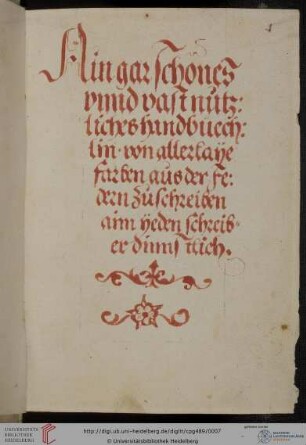 Ain gar schönes
vnnd vast nutz:
liches handbüech:
lin. von allerlaÿe
farben aus der fe:
dern zu schreiben
aim ÿeden schreib-
er dinnstlich.
UNIVERSITÄTS-
BIBLIOTHEK
HEIDELBERG
http://digi.ub.uni-heidelberg.de/diglit/cpg489/0007
© Universitätsbibliothek Heidelberg